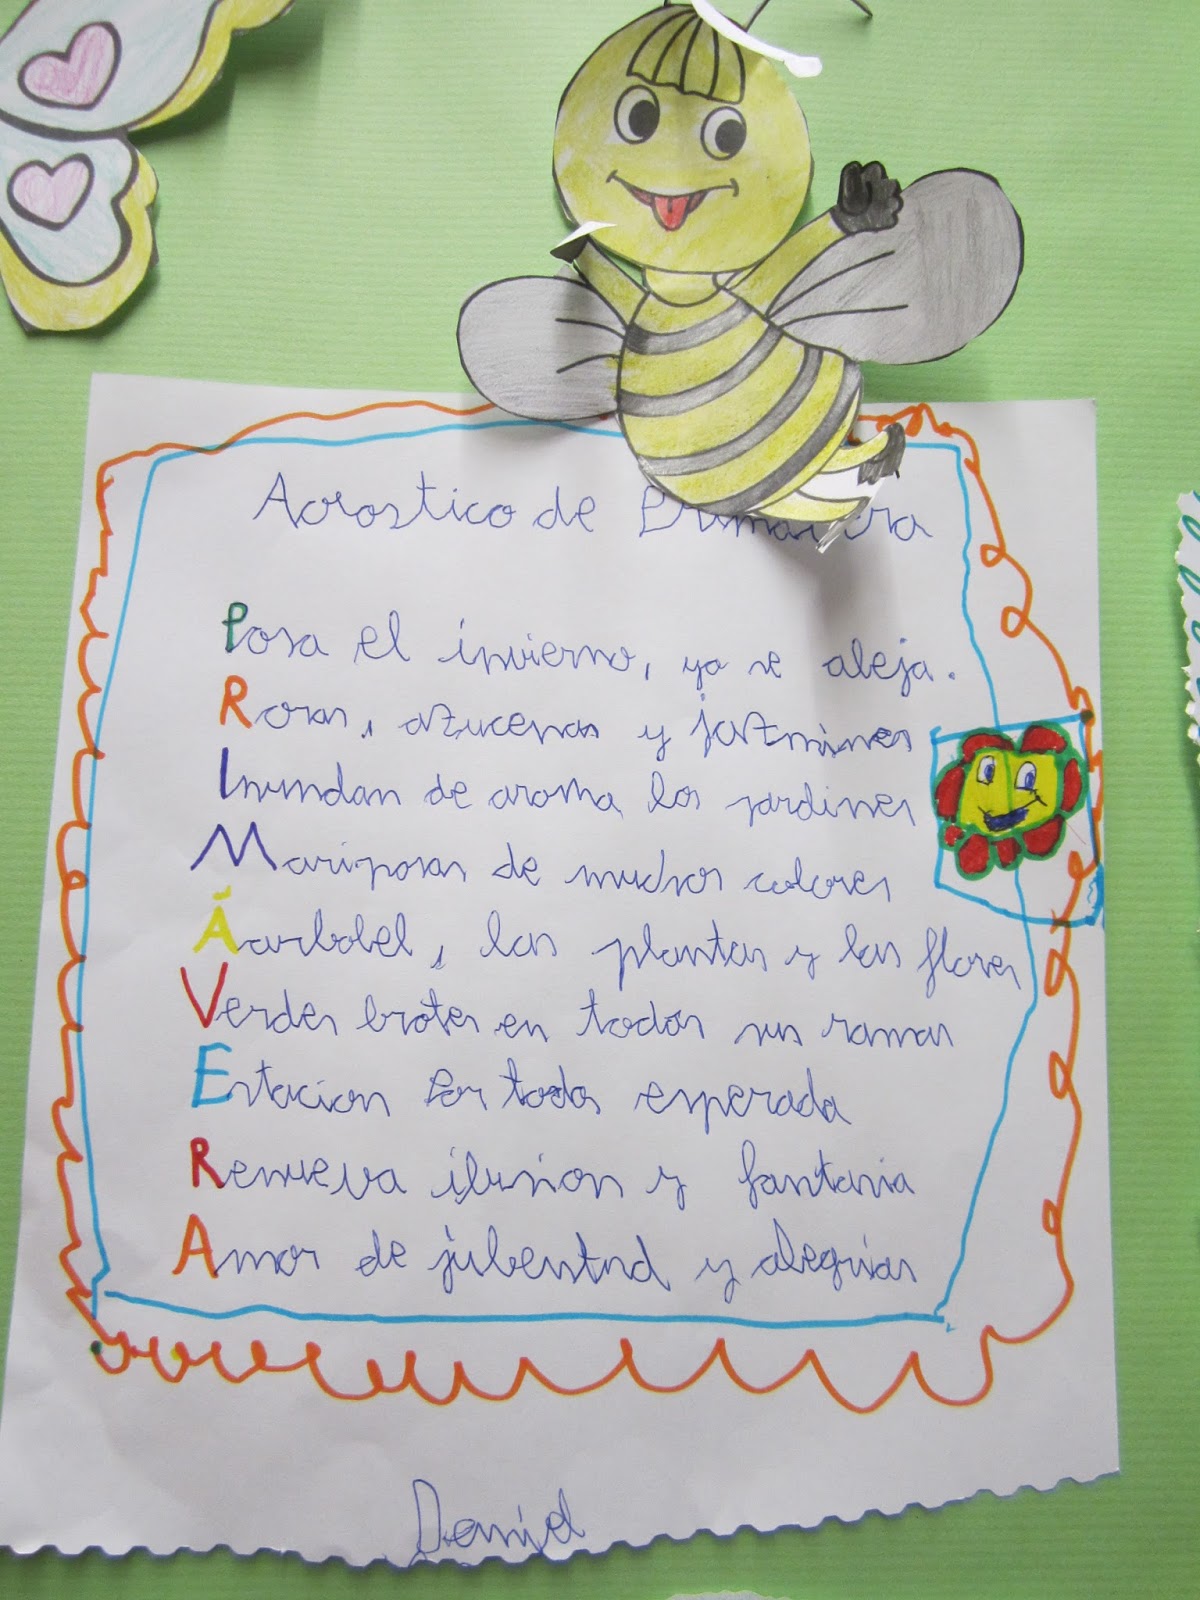 Acrostico de Primavera
Posa el invierno, ya se aleja.
Rosas, azucenas y jazmines
Inundan de aroma los jardines
Mariposas de muchos colores
Áarbolel, las plantas y las flores
Verdes brotes en todas sus ramas
Estacion Por todos esperada
Renueva ilusion y fantasia
Amor de jubentud y alegrias
Daniel